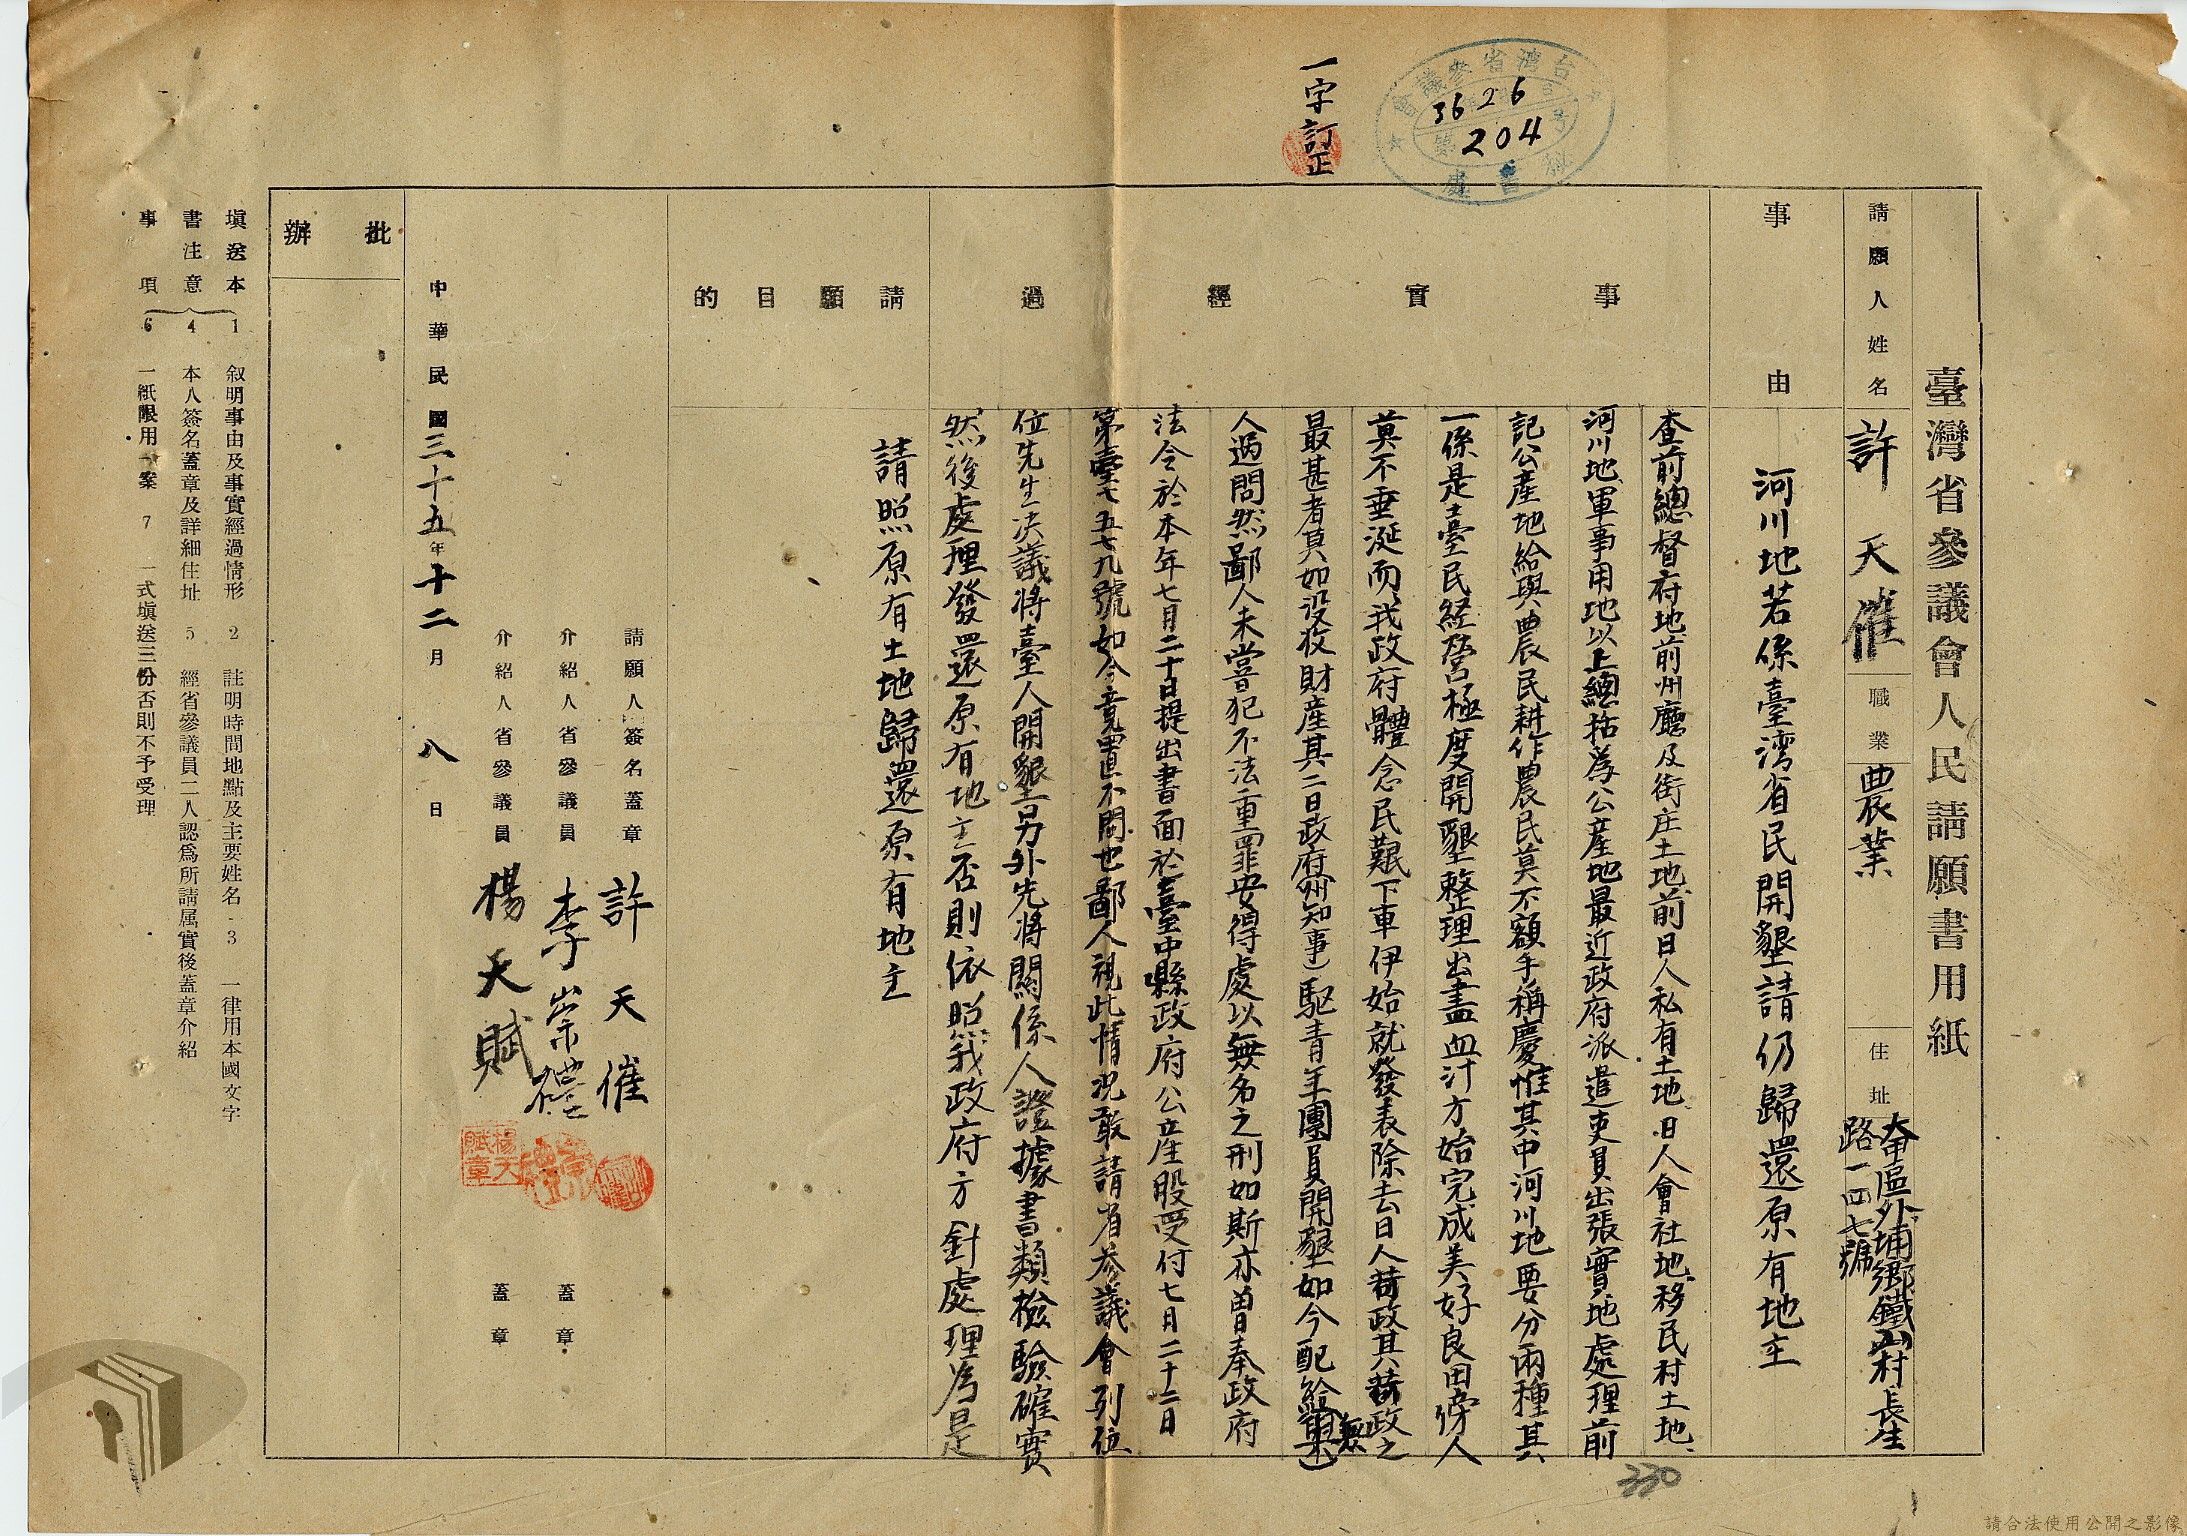 臺灣省參議會人民請願書用紙
請願人姓名 許天催 職業 農業 住址 區外埔鄉鐵山村長生
路一四七號
事由 河川地若係臺湾省民開墾請仍歸還原有地主
事實經過
查前總督府地前州廳及街庄土地前日人私有土地日人會社地移民村土地
河川地軍事用地以上總括為公產地最近政府派遣吏員出張實地處理前
記公產地給與農民耕作農民莫不額手稱慶惟其中河川地要分兩種其
一係是臺民経營極度開墾整理出盡血汁方始完成美好良田傍人
莫不垂涎而我政府體念民艱下車伊始就發表除去日人苛政其苛政之
最甚者莫如没收財產其二日政府州知事駆青年團員開墾如今配給與無
人過問然鄙人未嘗犯不法重罪安得處以無名之刑如斯亦曾奉政府
法令於本年七月二十日提出書面於臺中縣政府公產股受付七月二十二日
第臺七五七九號如今竟置不問也鄙人視此情況敢請省參議會列位
位先生決議將臺人開墾另外先將關係人證據書類檢驗確實
然後處理發還原有地主否則依照我政府方針處理為是
請願目的
請照原有土地歸還原有地主
請願人簽名蓋章 許天催
介紹人省參議員 李崇禮 蓋章
介紹人省參議員 楊天賦 蓋章
中華民國三十五年十二月八日
批辦
填送本書注意事項
1 叙明事由及事實經過情形 2 註明時間地點及主要姓名 3 一律用本國文字
4 本人簽名蓋章及詳細住址 5 經省參議員二人認爲所請属實後蓋章介紹
6 一紙限用一案 7 一式填送三份否則不予受理
一字訂正
台灣省參議會
36 2 6
第204號
秘書處
楊天賦章
330
請合法使用公開之影像